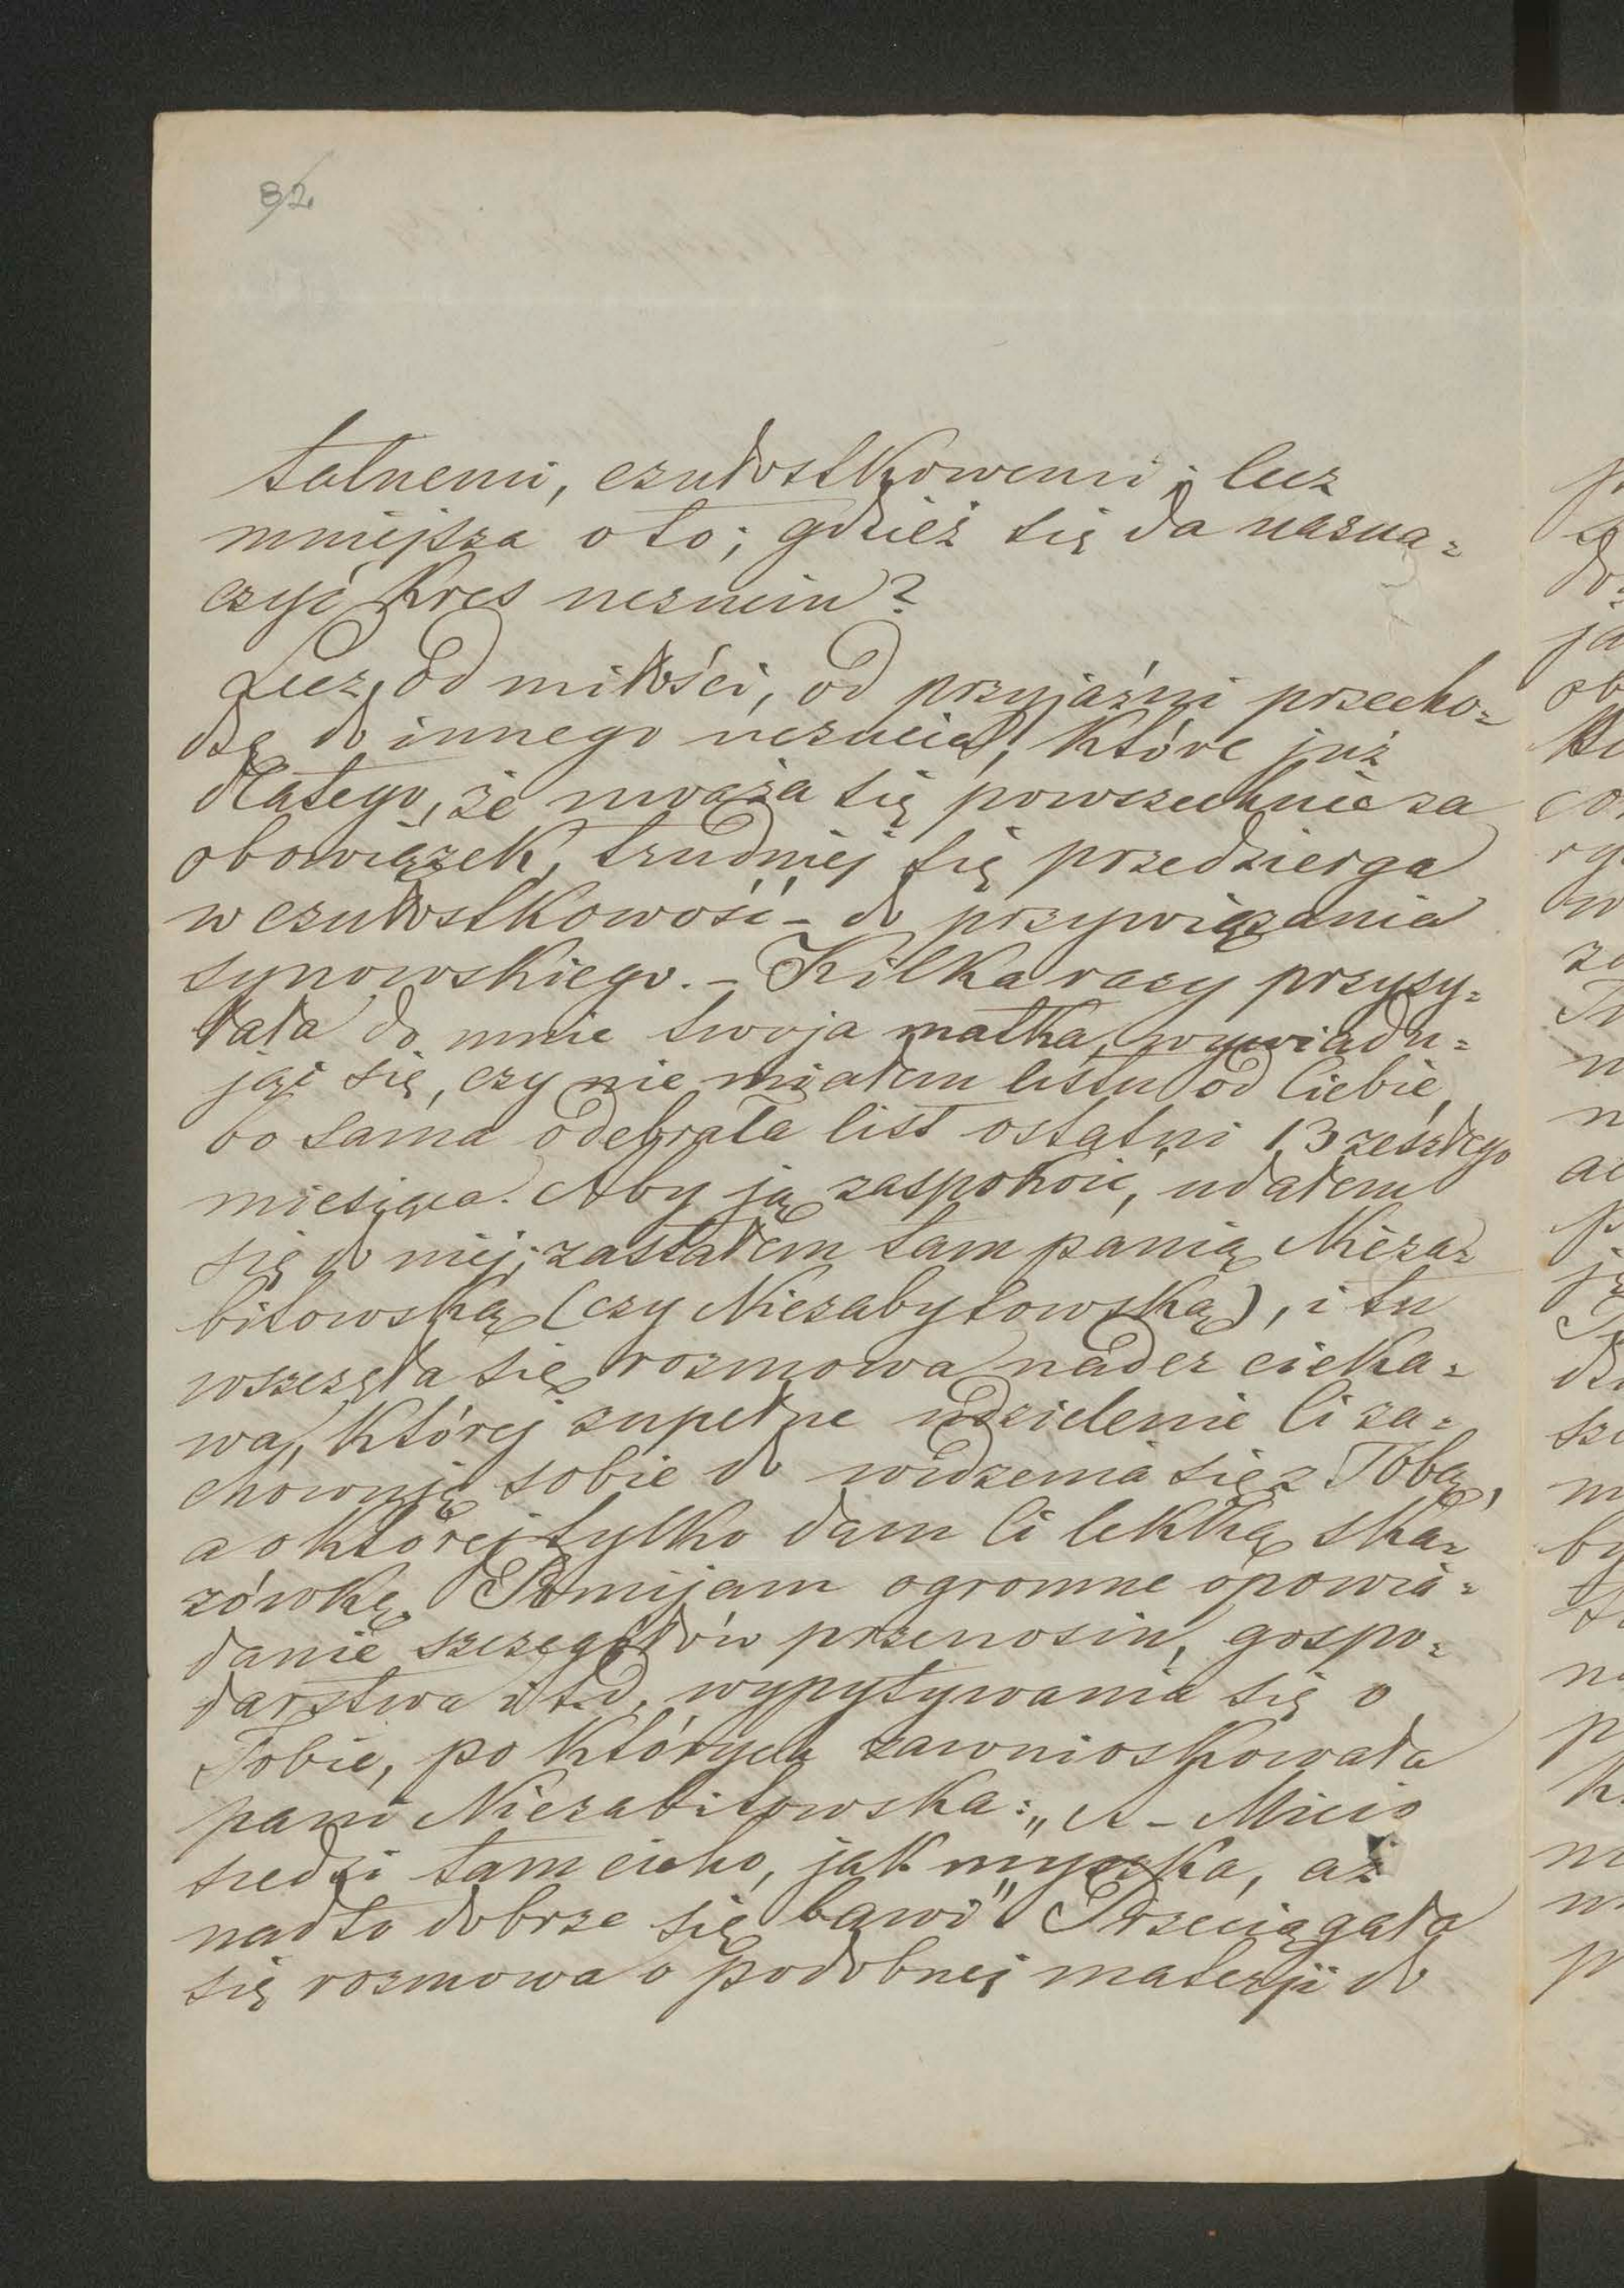 82
talnemi, czułostkowemi; lecz
mniejsza o to; gdzież się da nazna=
czyć kres uczuciu?
Lecz od miłości, od przyjaźni przecho=
dzę do innego uczucia, które już
dlatego, że uważa się powszechnie za
obowiązek, trudniej się przedzierga
w czułostkowość – do przywiązania
synowskiego. – Kilka razy przysy=
łała do mnie twoja matka, wywiadu=
jąc się, czy nie miałem listu od Ciebie,
bo sama odebrała list ostatni 13 zeszłego
miesiąca. Aby ją zaspokoić, udałem
się do niej; zastałem tam panią Nieza=
bitowską (czy Niezabytowską), i tu
wszczęła się rozmowa nader cieka=
wa, której zupełne udzielenie Ci za=
chowuję sobie do widzenia się z Tobą,
a o której tylko dam Ci lekką ska=
zówkę. Pomijam ogromne opowia=
danie szczegółów przenosin, gospo=
darstwa i t.d. wypytywania się o
Tobie, po których zawnioskowała
pani Niezabitowska: „A – Micio
siedzi tam cicho, jak myszka, aż
nadto dobrze się bawi” Przeciągała
się rozmowa o podobnej materji do